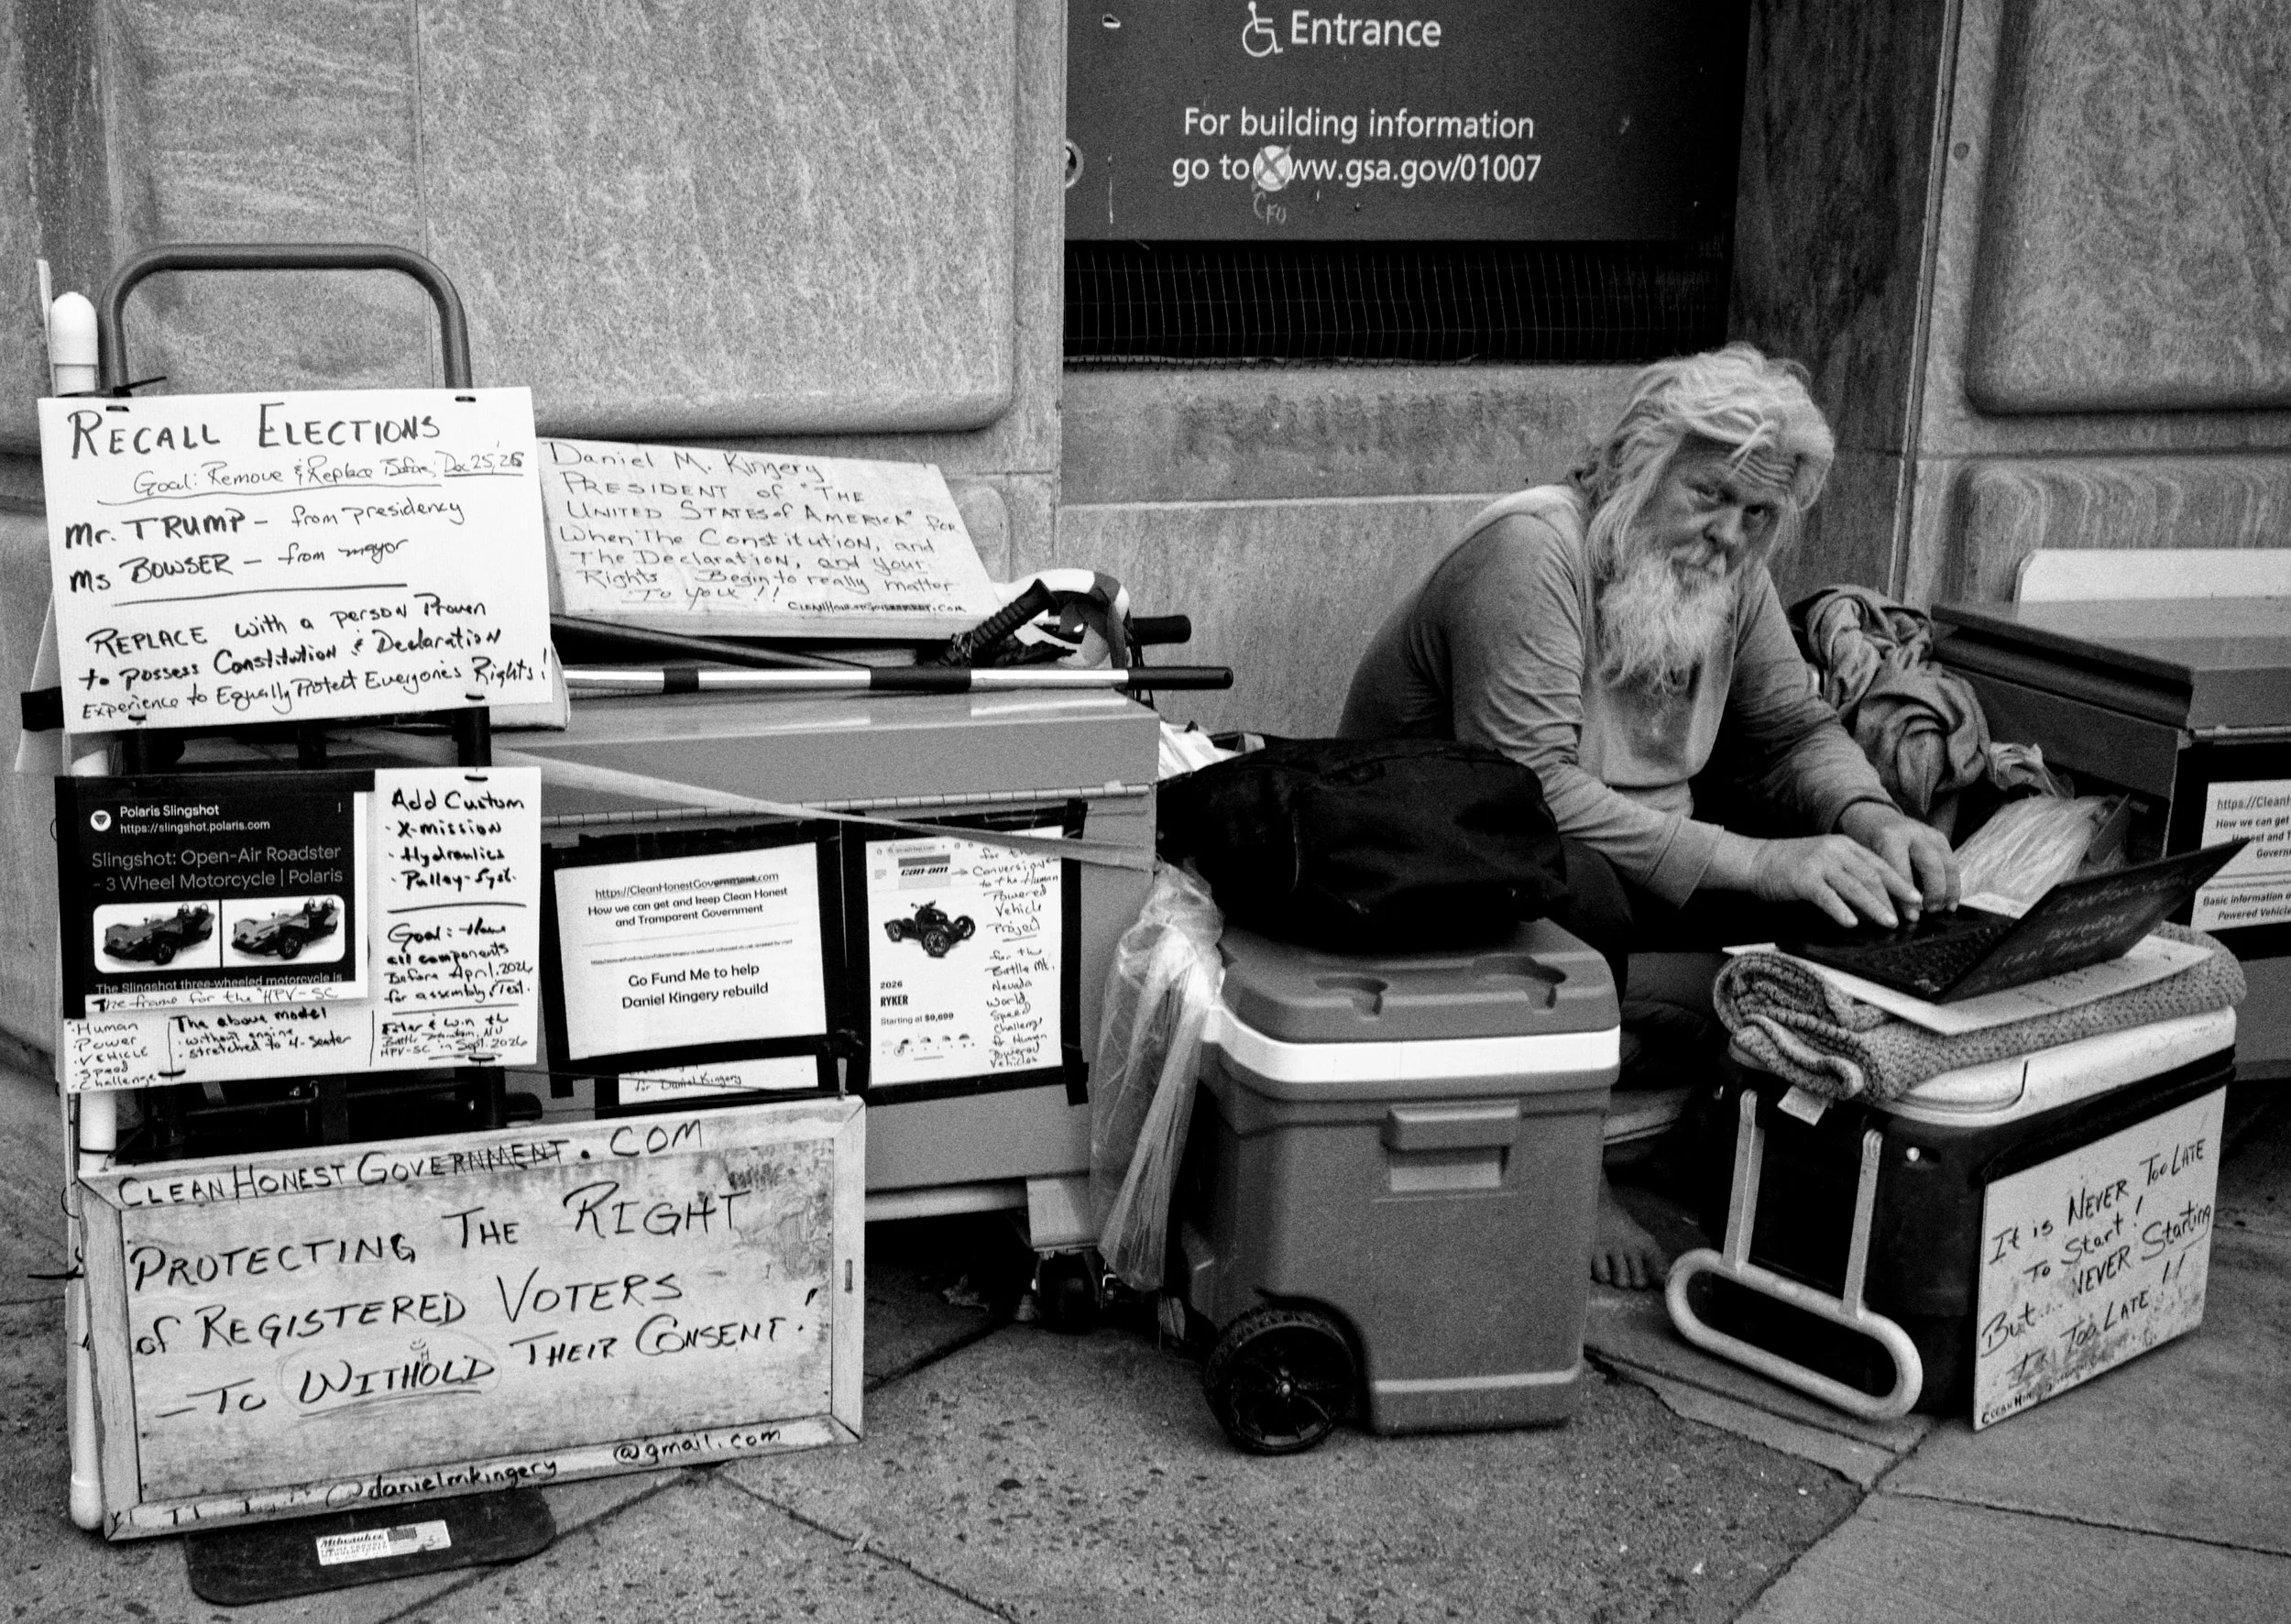 Entrance
For building information
go to www.gsa.gov/01007
CFO
RECALL ELECTIONS
Goal: Remove & Replace Before; Dec 25,'26
Mr. TRUMP - from presidency
Ms BOWSER - from mayor
REPLACE with a person Proven
to possess Constitution & Declaration
Experience to Equally Protect Everyone's Rights!
Daniel M. Kingery
PRESIDENT of "THE
UNITED STATES of AMERICA" for
When The Constitution, and
The Declaration, and your
Rights Begin to really matter
To you!!
CLEANHONESTGOVERNMENT.COM
Polaris Slingshot
https://slingshot.polaris.com
Slingshot: Open-Air Roadster
- 3 Wheel Motorcycle | Polaris
The Slingshot three-wheeled motorcycle is
The frame for the "HPV-SC
Human
Power
VEHICLE
Speed
Challenge
The above model
· without engine
· stretched to 4-seater
Add Custom
· X-mission
· Hydraulics
· Pulley-Syst.
Goal: Have
all components
Before April, 2026
for assembly/Test.
Enter & Win the
Battle Mountain, NV
HPV-SC in Sept. 2026
https://CleanHonestGovernment.com
How we can get and keep Clean Honest
and Transparent Government
Go Fund Me to help
Daniel Kingery rebuild
for Daniel Kingery
can-am
for the
Conversion
to the Human
Powered
Vehicle
Project
for the
Battle Mt.
Nevada
World
Speed
Challenge
for Human
Powered
Vehicles
2026
RYKER
Starting at $9,699
CLEANHONESTGOVERNMENT.COM
PROTECTING THE RIGHT
of REGISTERED VOTERS
- TO WITHHOLD THEIR CONSENT!
@danielmkingery @gmail.com
Milwaukee
https://CleanH
How we can get
Honest and T
Governm
Basic information o
Powered Vehicle
It is NEVER TOO LATE
To Start!
But... NEVER Starting
Is TOO LATE!!
CLEANHON